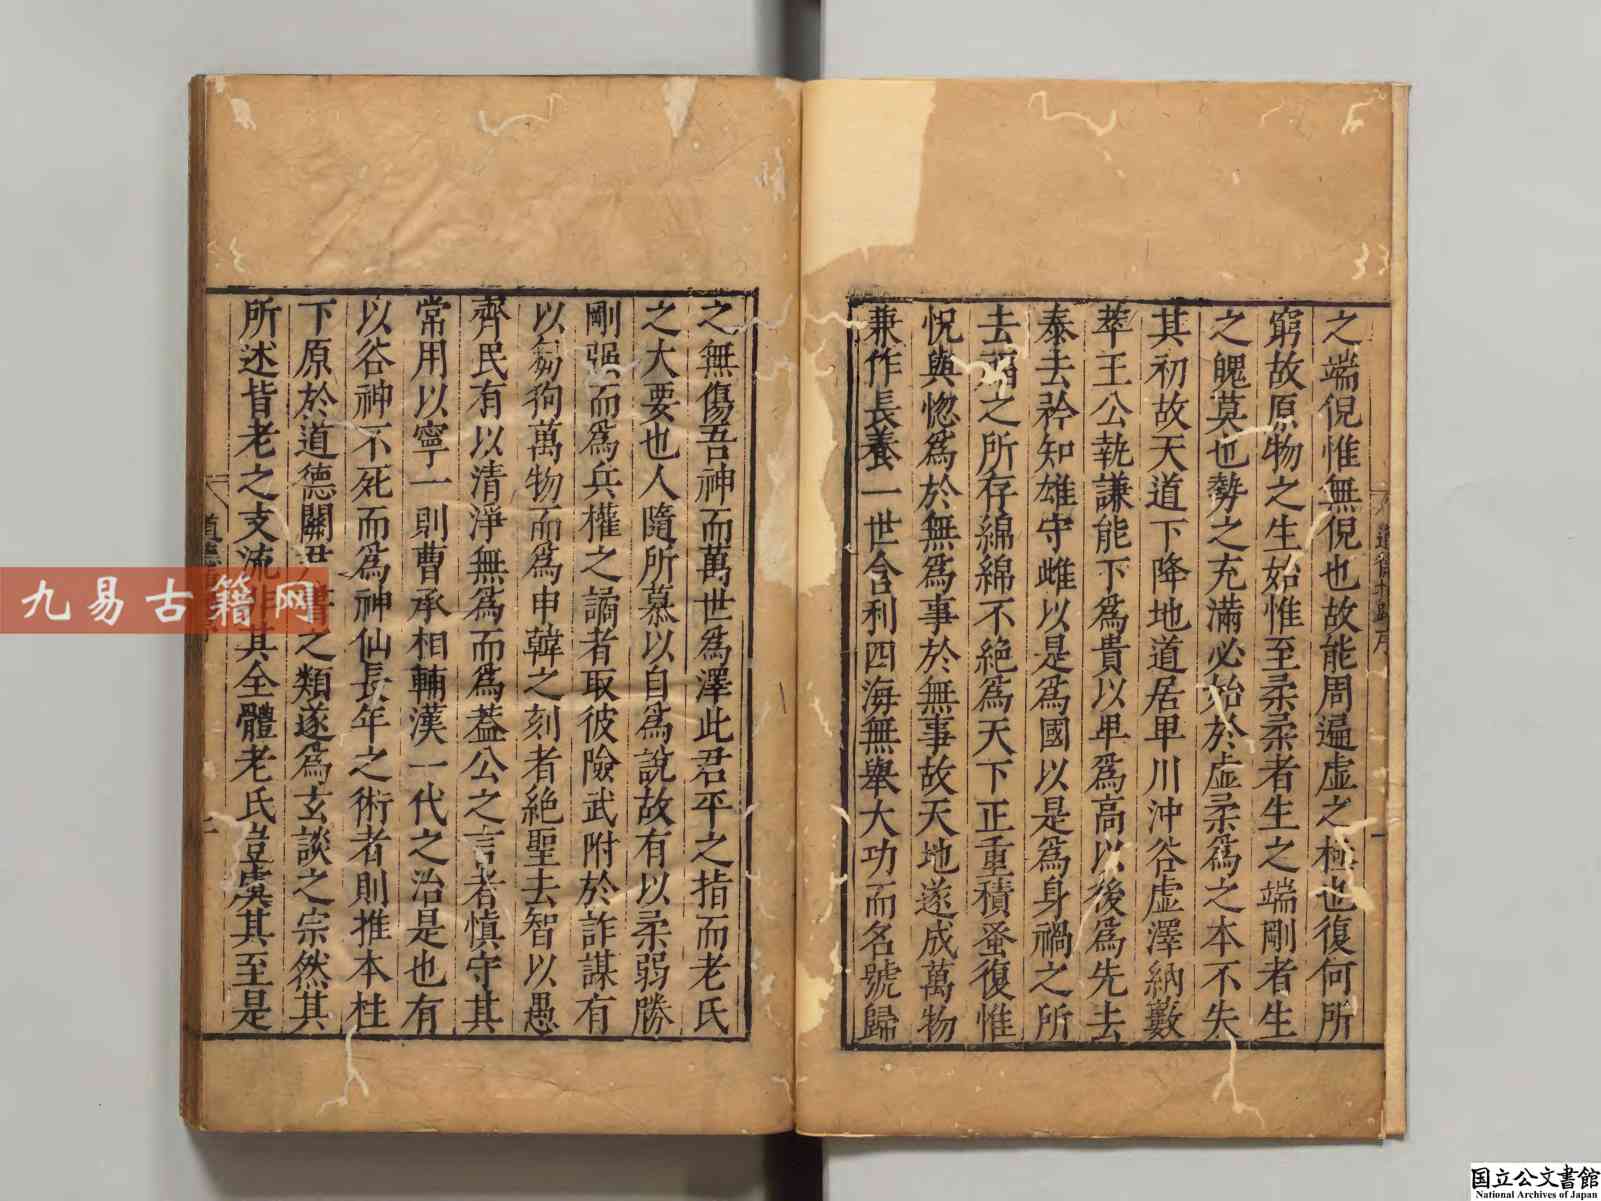 之端倪惟無倪也故能周遍虛之極也復何所
窮故原物之生始惟至柔柔者生之端剛者生
之魄莫也勢之充滿必始於虛柔為之本不失
其初故天道下降地道居卑川沖谷虛澤納藪
萃王公執謙能下為貴以卑為高以後為先去
泰去矜知雄守雌以是為國以是為身禍之所
去福之所存綿綿不絶為天下正重積蚤復惟
恍與惚為於無為事於無事故天地遂成萬物
兼作長養一世含利四海無舉大功而名號歸
之無傷吾神而萬世為澤此君平之指而老氏
之大要也人隨所慕以自為說故有以柔弱勝
剛強而為兵權之謫者取彼險武附於詐謀有
以芻狗萬物而為申韓之刻者絶聖去智以愚
齊民有以清淨無為而為蓋公之言者慎守其
常用以寧一則曹丞相輔漢一代之治是也有
以谷神不死而為神仙長年之術者則推本柱
下原於道德關尹之類遂為玄談之宗然其
所述皆老之支流非其全體老氏豈虞其至是
九易古籍网
国立公文書館
National Archives of Japan